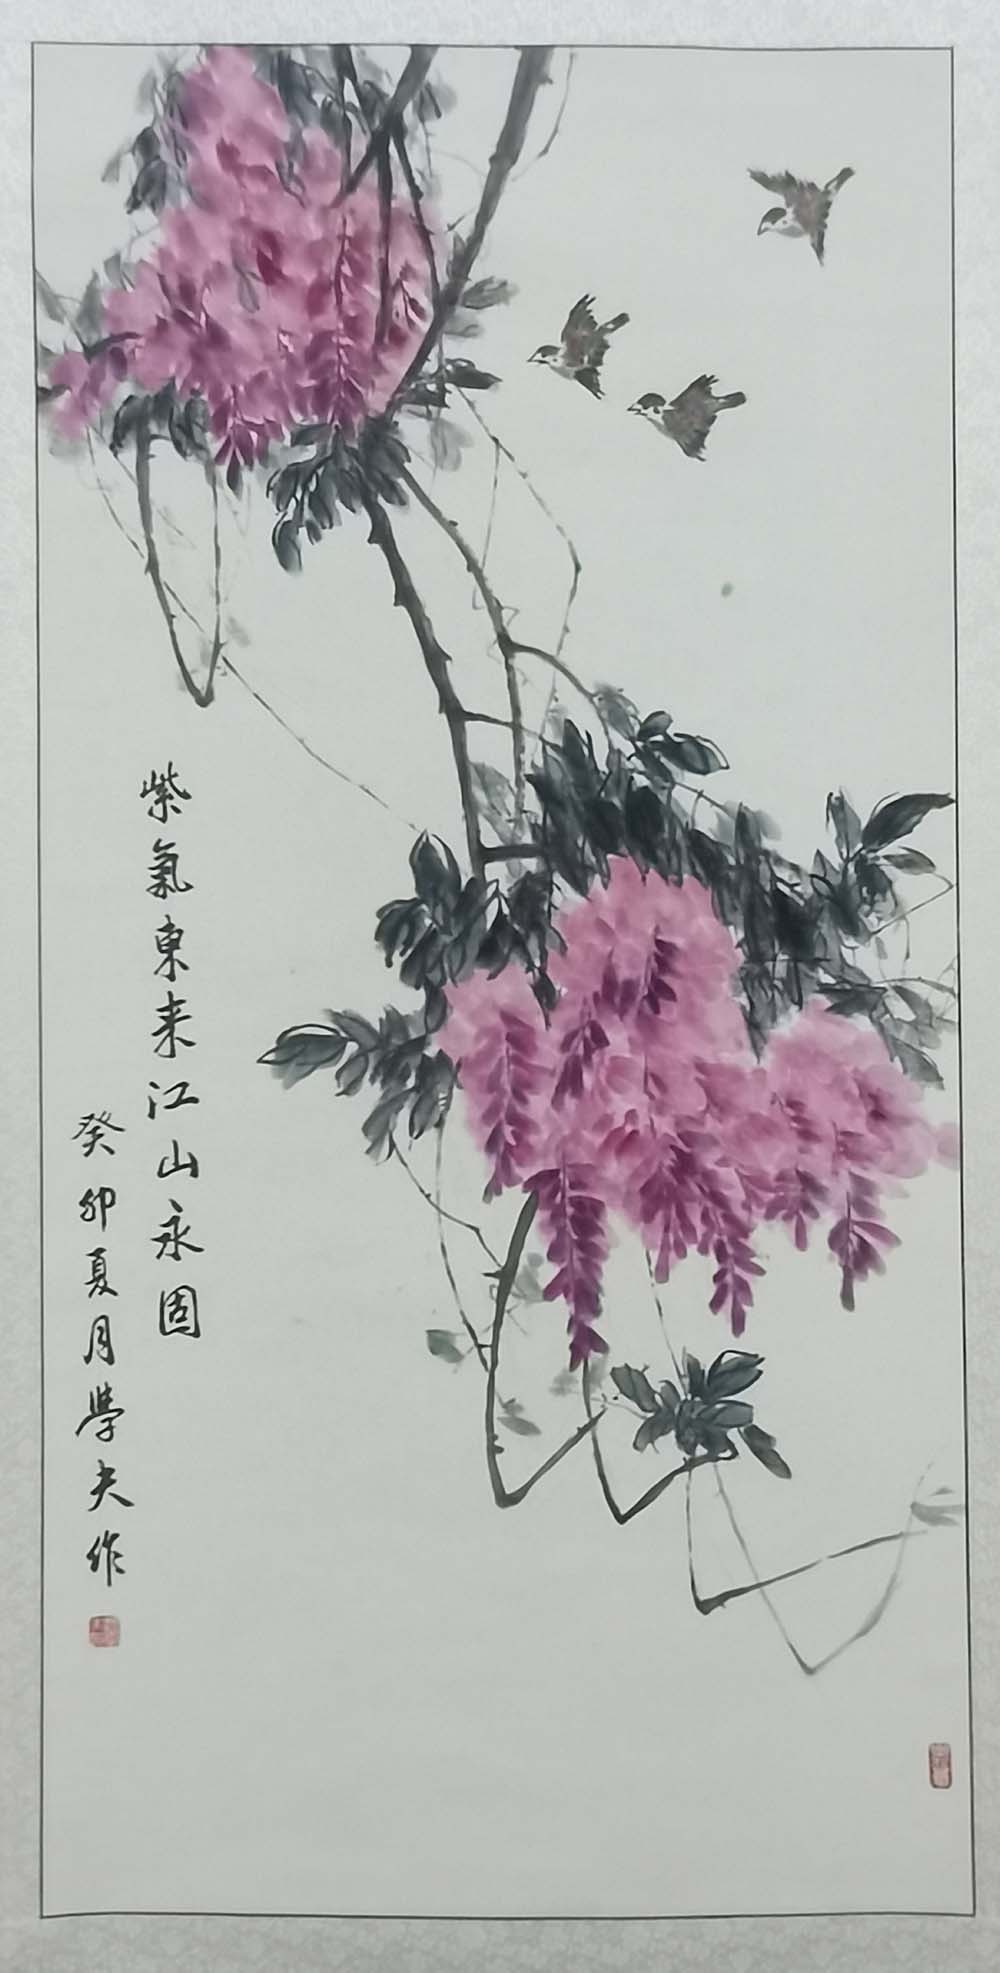 紫氣東来江山永固
癸卯夏月學夫作